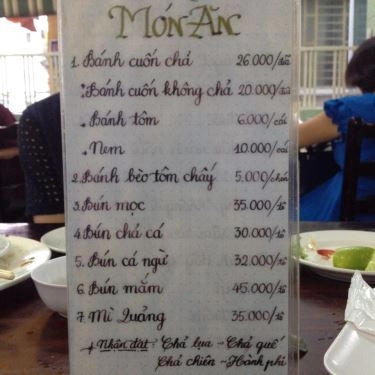 MÓN ĂN
1. Bánh cuốn chả 26.000/đĩa
Bánh cuốn không chả 20.000/đĩa
Bánh tôm 6.000/cái
Nem 10.000/cái
2. Bánh bèo tôm chấy 5.000/chén
3. Bún mọc 35.000/tô
4. Bún chả cá 30.000/tô
5. Bún cá ngừ 32.000/tô
6. Bún mắm 45.000/tô
7. Mì Quảng 35.000/tô
* Nhận đặt: Chả lụa - Chả quế
Chả chiên - Hành phi